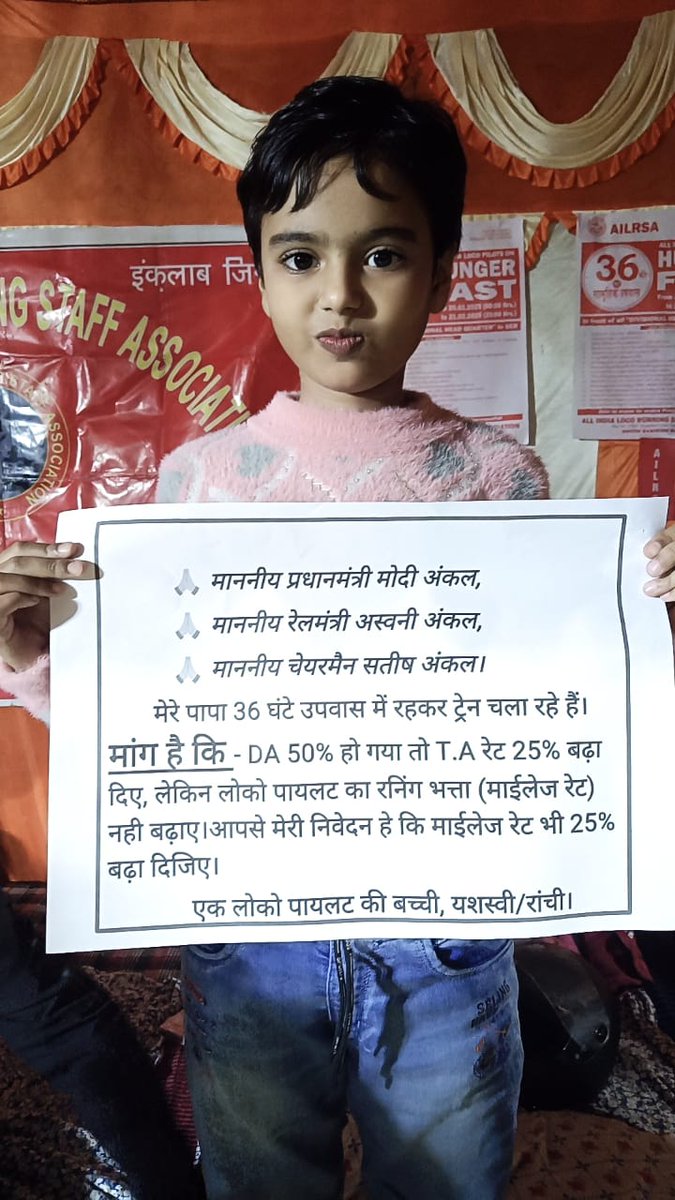 इंक़लाब जि
NG STAFF ASSOCIATI
ASSOCIATION
UNGER
FAST
AILRSA
36
H
F
माननीय प्रधानमंत्री मोदी अंकल,
माननीय रेलमंत्री अस्वनी अंकल,
माननीय चेयरमैन सतीष अंकल।
मेरे पापा 36 घंटे उपवास में रहकर ट्रेन चला रहे हैं।
मांग है कि - DA 50% हो गया तो T.A रेट 25% बढ़ा
दिए, लेकिन लोको पायलट का रनिंग भत्ता (माईलेज रेट)
नही बढ़ाए।आपसे मेरी निवेदन हे कि माईलेज रेट भी 25%
बढ़ा दिजिए।
एक लोको पायलट की बच्ची, यशस्वी/रांची।